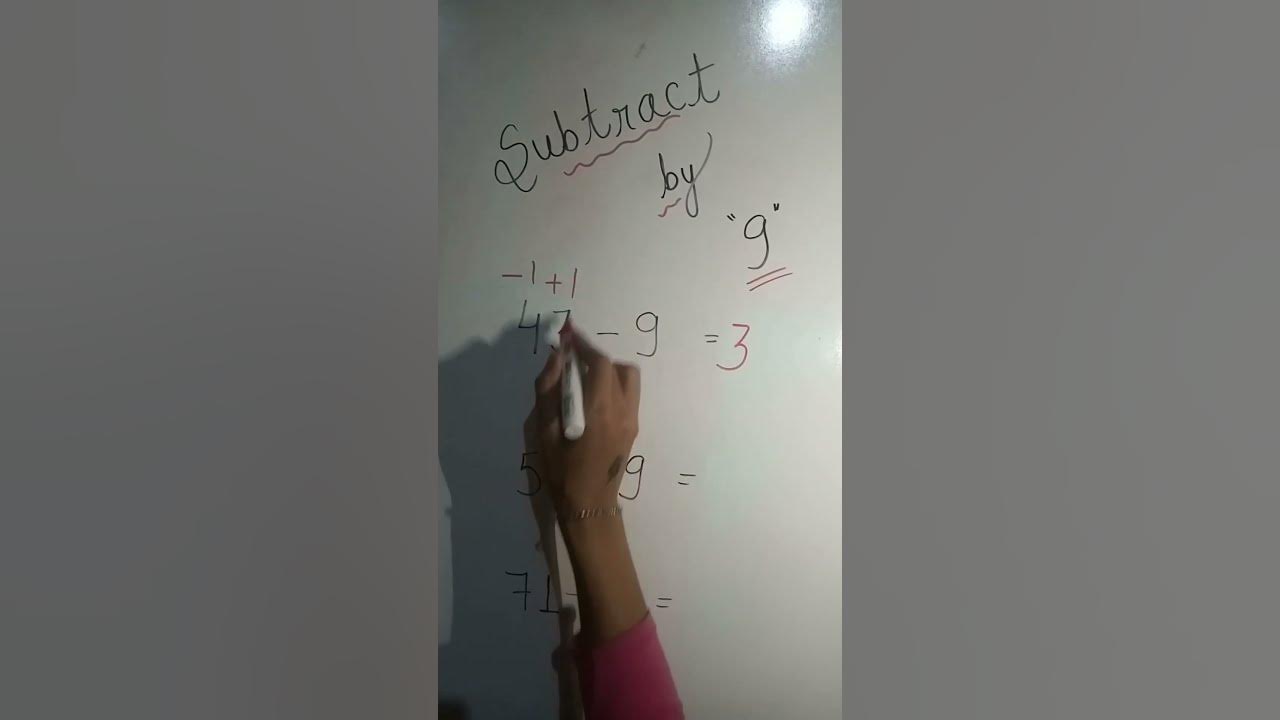 Subtract
by
"9"
-1 +1
43 - 9 = 3
5 9 =
71 - =